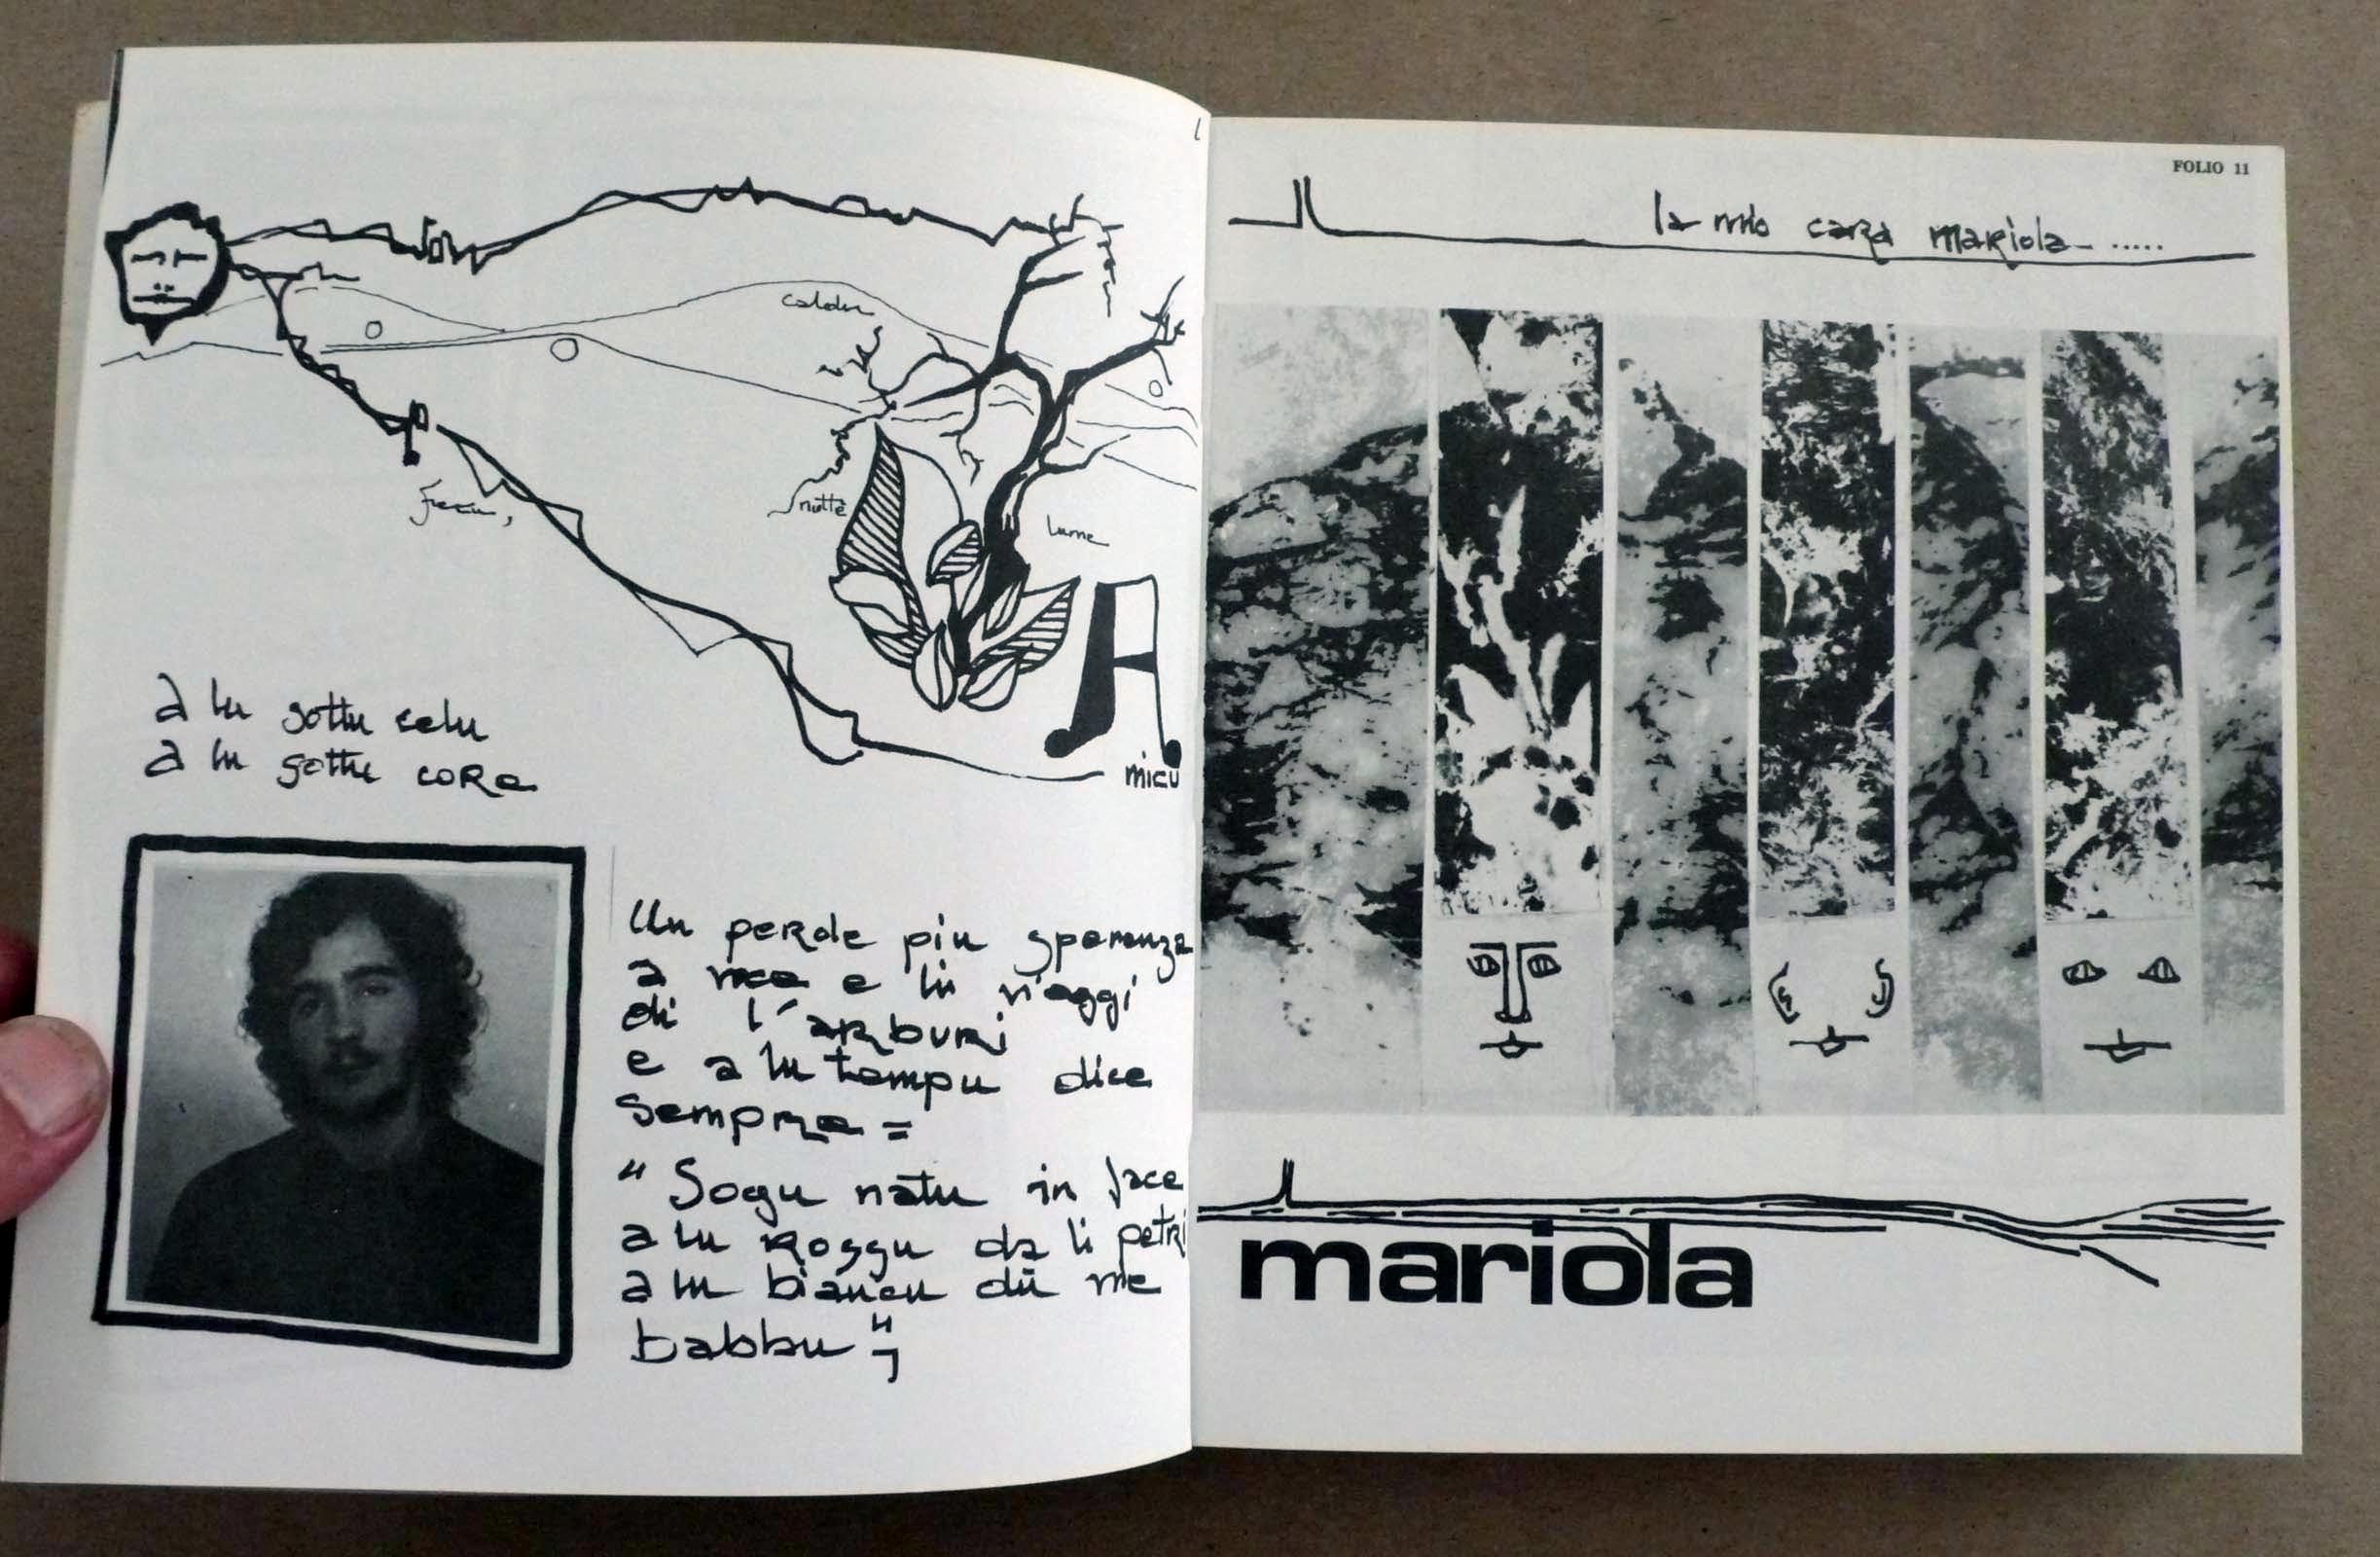 caldu
notte
lume
A
micu
a lu sottu celu
a lu sottu core
Un perde piu speranza
a me e li viaggi
di l'arburi
e a lu tempu dice
sempre =
" Sogu natu in face
a lu roggu da li petri
a lu biancu dū me
babbu ";
FOLIO 11
la mio cara mariola .....
mariola